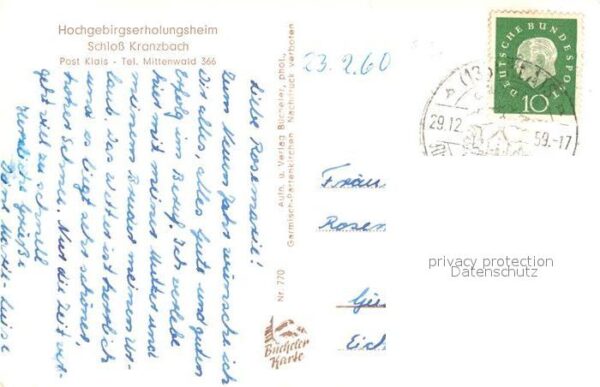 Hochgebirgserholungsheim
Schloß Kranzbach
Post Klais - Tel. Mittenwald 366
Liebe Rosemarie!
Zum Neuen Jahr wünsche ich
Dir alles, alles Gute und guten
Erfolg im Beruf. Ich verlebe
hier mit meiner Mutter und
meinem Bruder meinen Ur-
laub. Das Wetter ist herrlich
und es liegt sehr schöner,
hoher Schnee. Nur die Zeit ver-
geht viel zu schnell
Herzliche Grüße
Luise
Aufn. u. Verlag Bücheler, phot.,
Garmisch-Partenkirchen. Nachdruck verboten
Nr. 770
Bücheler
Karte
23.2.60
DEUTSCHE BUNDESPOST
10
(13
29.12.
59.-17
Fräu
Rosem
Eich
privacy protection
Datenschutz